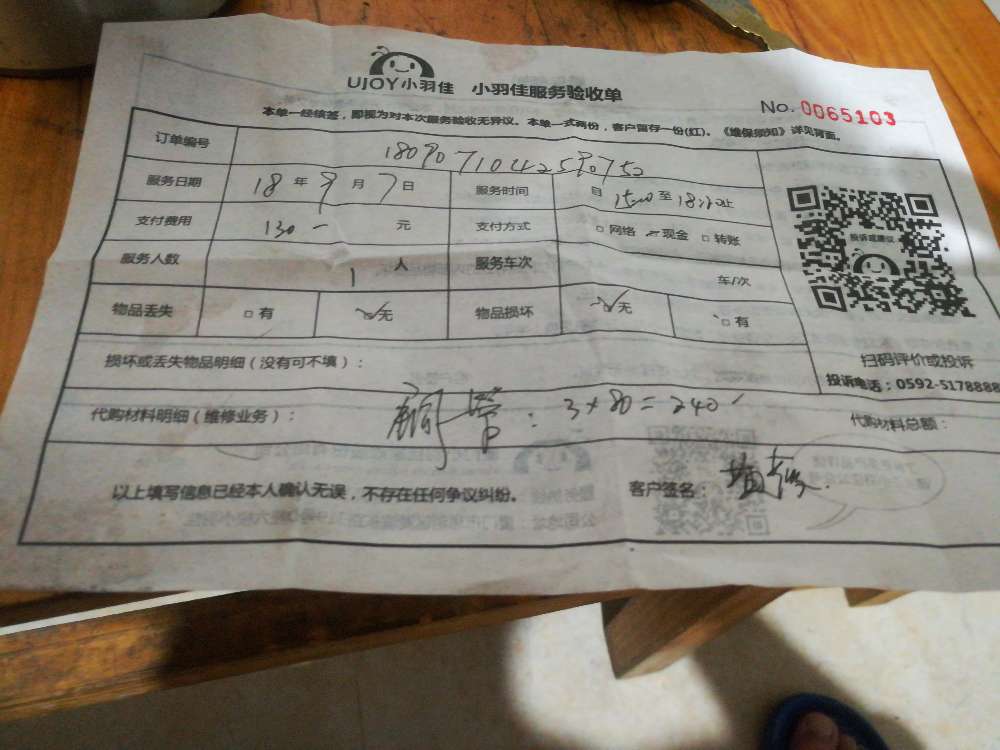 UJOY小羽佳 小羽佳服务验收单
No. 0065103
本单一经核签，即视为对本次服务验收无异议。本单一式两份，客户留存一份(红)。《维保须知》详见背面。
订单编号
服务日期 18 年 9 月 7 日 服务时间 自 至 止
支付费用 130 - 元 支付方式 □ 网络 现金 □ 转账
服务人数 1 人 服务车次 车/次
物品丢失 □ 有 □ 无 物品损坏 □ 无 □ 有
投诉或建议
扫码评价或投诉
投诉电话：0592-5178888
损坏或丢失物品明细（没有可不填）：
代购材料明细（维修业务）： 铜管：3×80=240 代购材料总额：
以上填写信息已经本人确认无误，不存在任何争议纠纷。 客户签名：